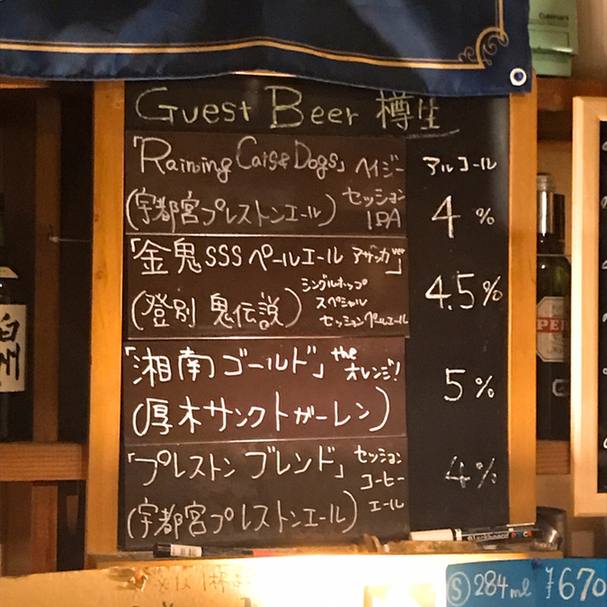 Guest Beer 樽生
「Raining Cats&Dogs」ヘイジー
セッション
IPA
(宇都宮プレストンエール)
アルコール
4 %
「金鬼SSSペールエール アザッカver」
シングルホップ
スペシャル
セッションペールエール
(登別 鬼伝説)
4.5%
「湘南ゴールド」 the
オレンジ!
(厚木サンクトガーレン)
5%
「プレストン ブレンド」 セッション
コーヒー
エール
(宇都宮プレストンエール)
4%
Ⓢ 284ml ¥670
白州